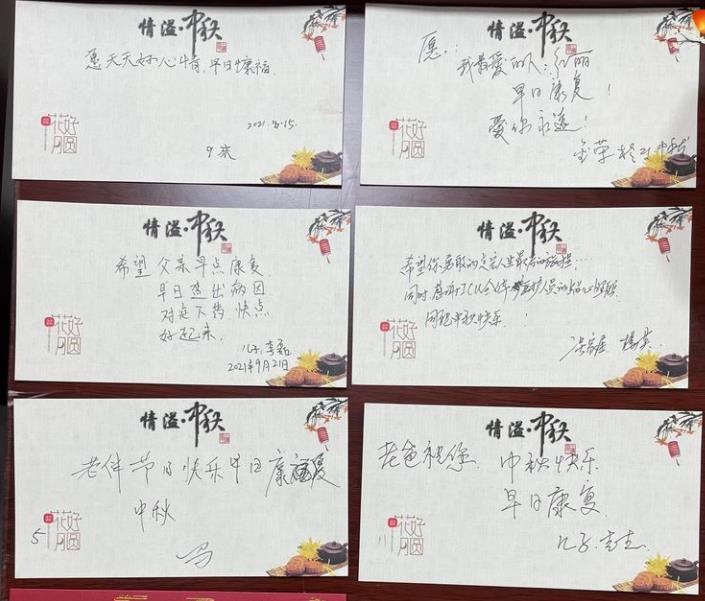 情溢·中秋
愿天天好心情,早日康福.
2021.8.15.
花好月圆
情溢·中秋
愿:
我最爱的人:红丽
早日康复!
爱你永远!
花好月圆
情溢·中秋
希望父亲早点康复
早日查出病因
对症下药 快点
好起来.
儿子:李磊
2021年9月21日
花好月圆
情溢·中秋
希望你勇敢的走完人生最后的
同时.感谢ICU全体医护人员的
同祝中秋快乐!
花好月圆
情溢·中秋
老伴节日快乐早日康复
中秋
冯
5
花好月圆
情溢·中秋
老爸祝您 中秋快乐
早日康复.
儿子.
11
花好月圆